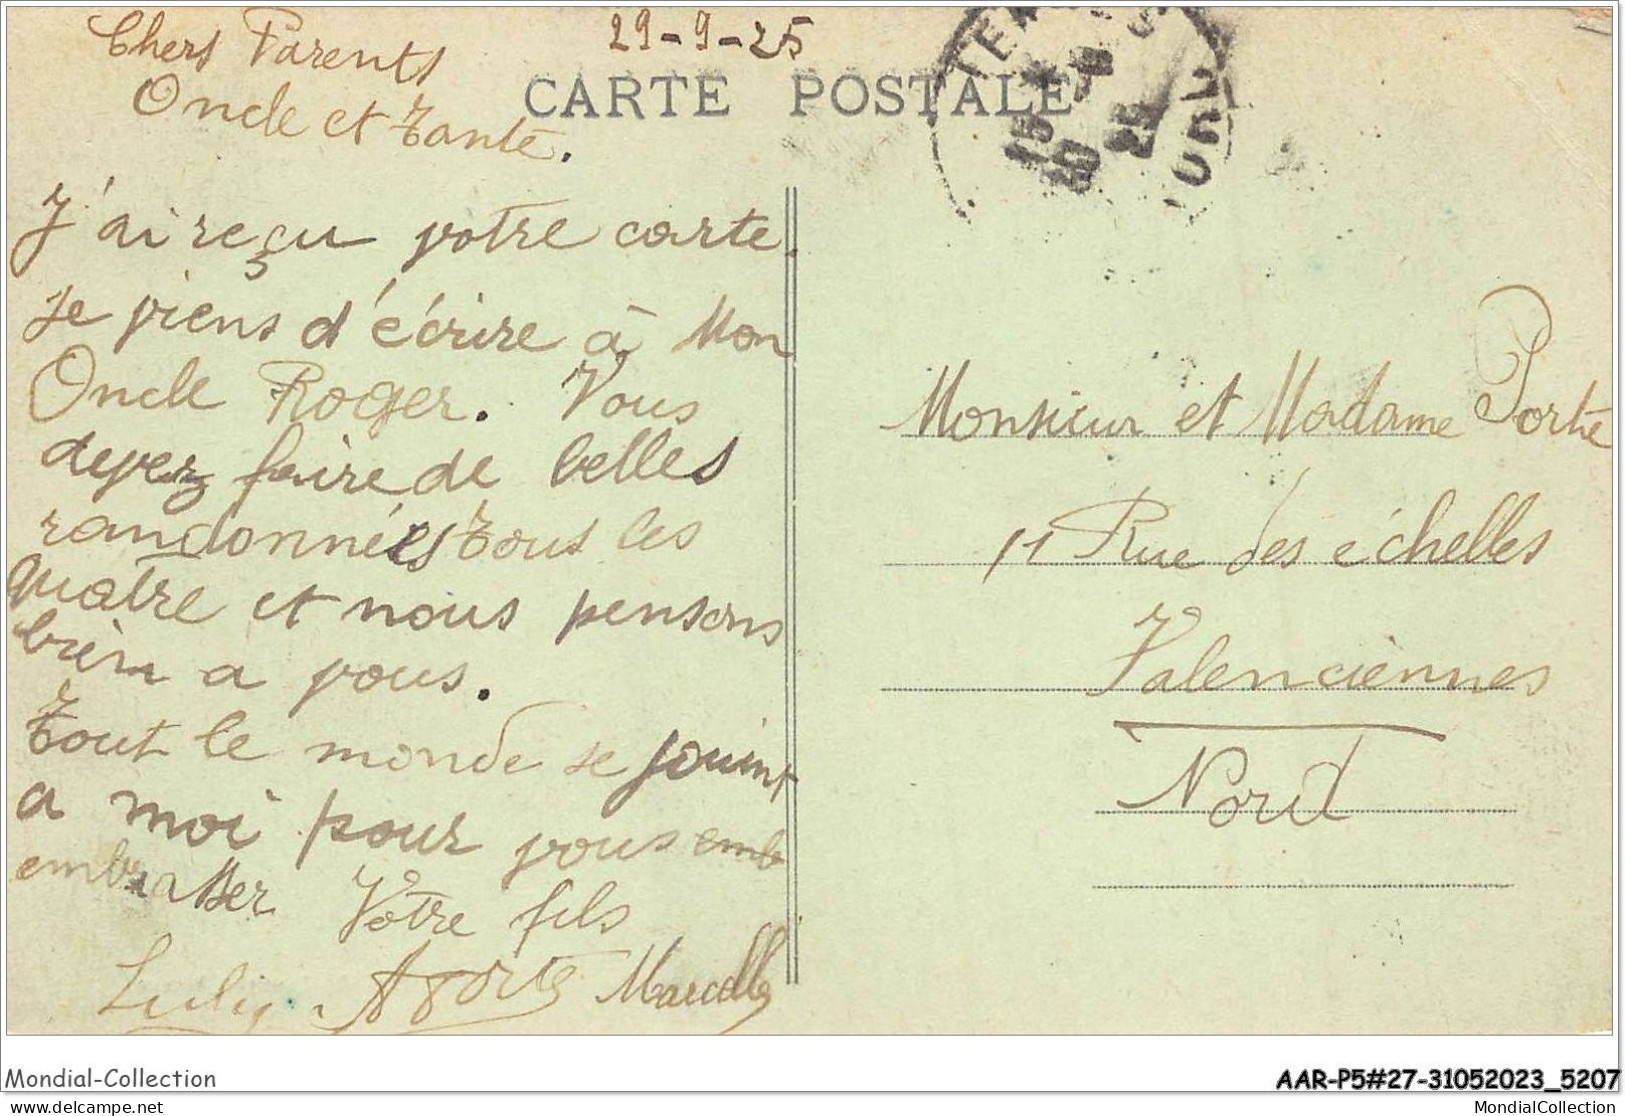 29-9-25
CARTE POSTALE
15
10
25
Chers Parents
Oncle et Tante.
J'ai reçu votre carte
Je viens d'écrire à Mon
Oncle Roger. Vous
devez faire de belles
randonnées tous les
quatre et nous pensons
bien a vous.
Tout le monde se jouint
a moi pour vous emb
embrasser Votre fils
Marcelle
Monsieur et Madame Porte
11 Rue des échelles
Valenciennes
Nord
Mondial-Collection
AAR-P5#27-31052023_5207
mondial-collection.delcampe.net
MondialCollection